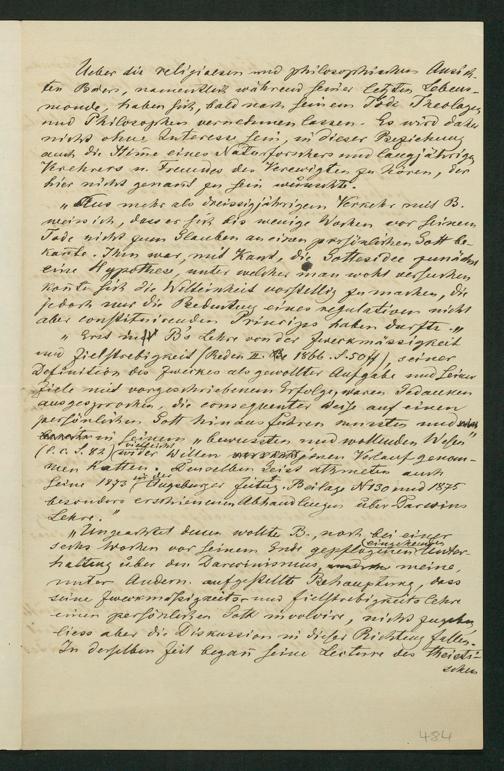 Ueber die religioesen und philosophischen Ansich-
ten Baers, namentlich während seiner letzten Lebens-
monde, haben sich, bald nach seinem Tode Theologen
und Philosophen vernehmen lassen. Es wird daher
nicht ohne Interesse sein, in dieser Beziehung
auch die Stimme eines Naturforschers und langjährigen
Verehrers u. Freundes des Verewigten zu hören, der
hier nicht genant zu sein wünschte.
„Aus mehr als dreissigjährigem Verkehr mit B.
weiss ich, dass er sich bis wenige Wochen vor seinem
Tode nicht zum Glauben an einen persönlichen Gott be-
kante. Ihm war, mit Kant, die Gottesidee zunächst
eine Hypothese, unter welcher man wohl versuchen
könte sich die Welteinheit vorstellig zu machen, die
jedoch nur die Bedeutung eines regulativen nicht
aber constituirenden Princips haben durfte.„
„Erst in B's Lehre von der Zweckmässigkeit
und Zielstrebigkeit (Reden II. 1866. S. 50ff), seiner
Definition des Zweckes als gewollter Aufgabe und seiner
Ziele mit vorgeschriebenem Erfolge, waren Gedanken
ausgesprochen, die consequenter Weise auf einen
persönlichen Gott hinausführen mussten und
in seinem „bewussten und wollenden Wesen"
(l. c. S. 82) vielleicht wider Willen jenen Verlauf genom-
men hatten. Denselben Geist athmeten auch
seine 1873 in der Augsburger Zeitug. Beilage N 130 und 1875
besonders erschienenen Abhandlungen über Darwins
Lehre."
„Ungeachtet dessen wollte B., noch bei einer
sechs Wochen vor seinem Ende gepflogenen eingehenden Unter-
haltung über den Darwinismus, meine,
unter Andern aufgestellte Behauptung, dass
seine Zweckmässigkeits und Zielstrebigkeits Lehre
einen persönlichen Gott involvire, nicht zugeben,
liess aber die Diskussion in dieser Richtung fallen.
In derselben Zeit begañ seine Lectüre des theisti-
schen
484